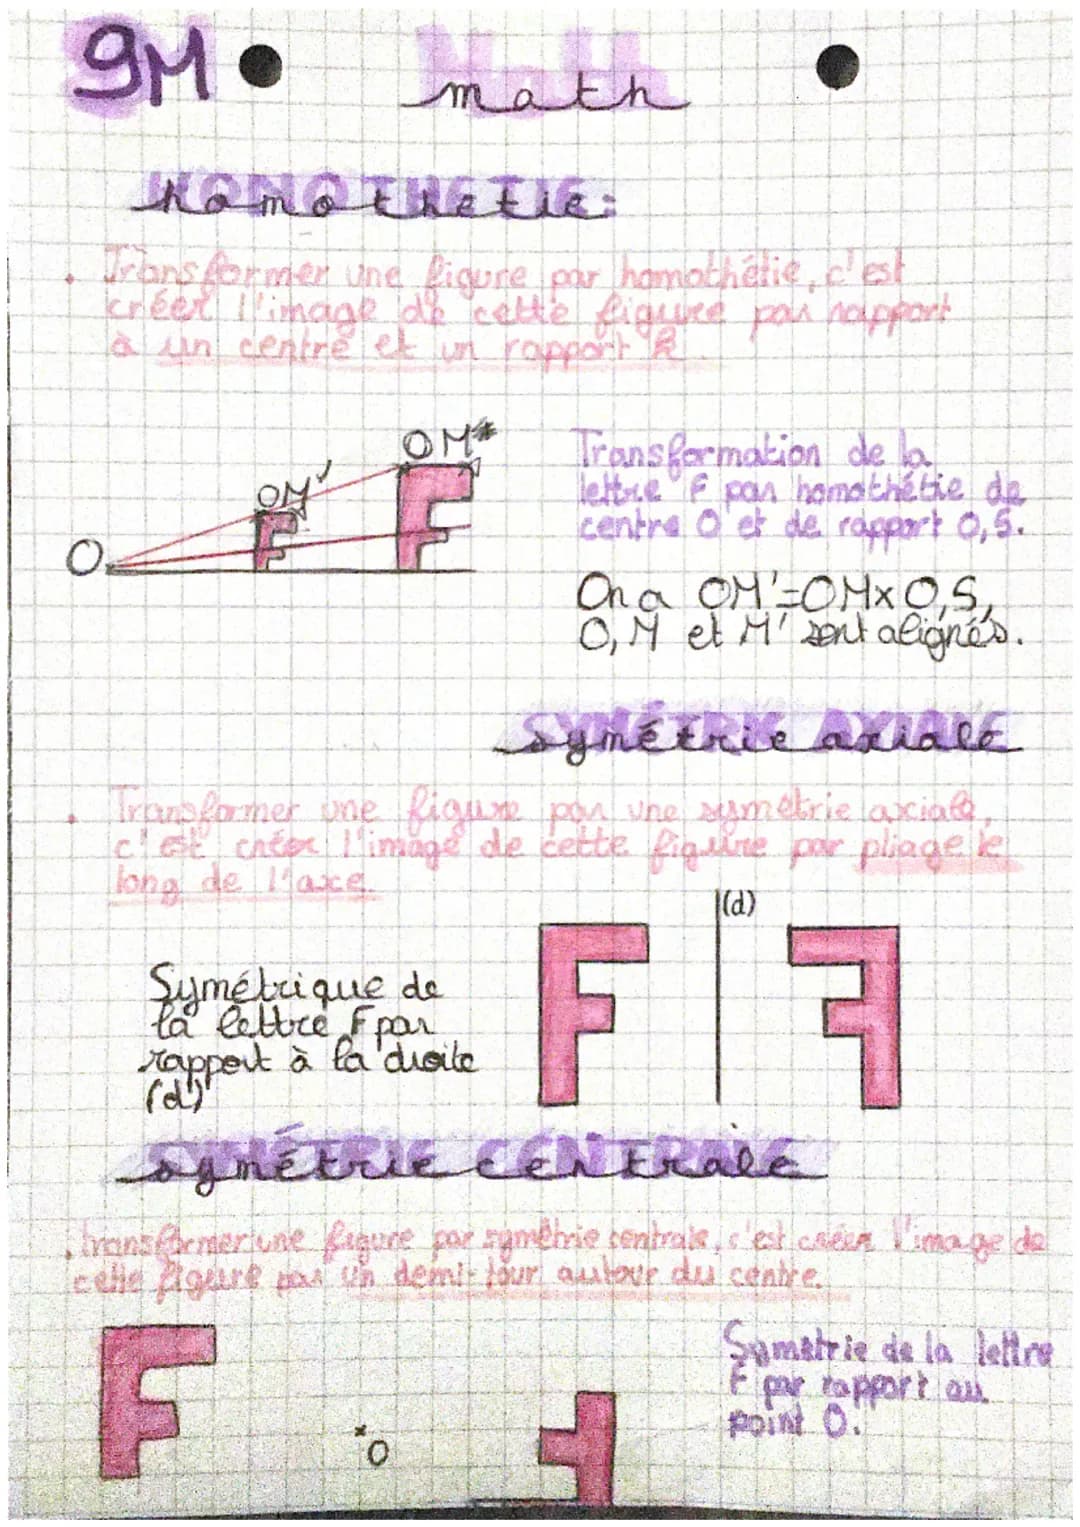 9M
Math
math
HOMOTHETIE
homothetie:
. Transformer une figure par homothétie, c'est
créer l'image de cette figure par rapport
à un centre et un rapport k.
OM'
OM
O
Transformation de la
lettre F par homothétie de
centre O et de rapport 0,5.
On a OM'=OMx0,5,
O, M et M' sont alignés.
SYMÉTRIE AXIALE
symétrie axiale
. Transformer une figure par une symétrie axiale,
c'est créer l'image de cette figure par pliage le
long de l'axe.
(d)
F
Symétrique de
la lettre F par
rapport à la droite
(d)
SYMÉTRIE CENTRALE
symétrie centrale
. transformer une figure par symétrie centrale, c'est créer l'image de
cette figure par un demi-tour autour du centre.
F
O
Symétrie de la lettre
F par rapport au
point O.